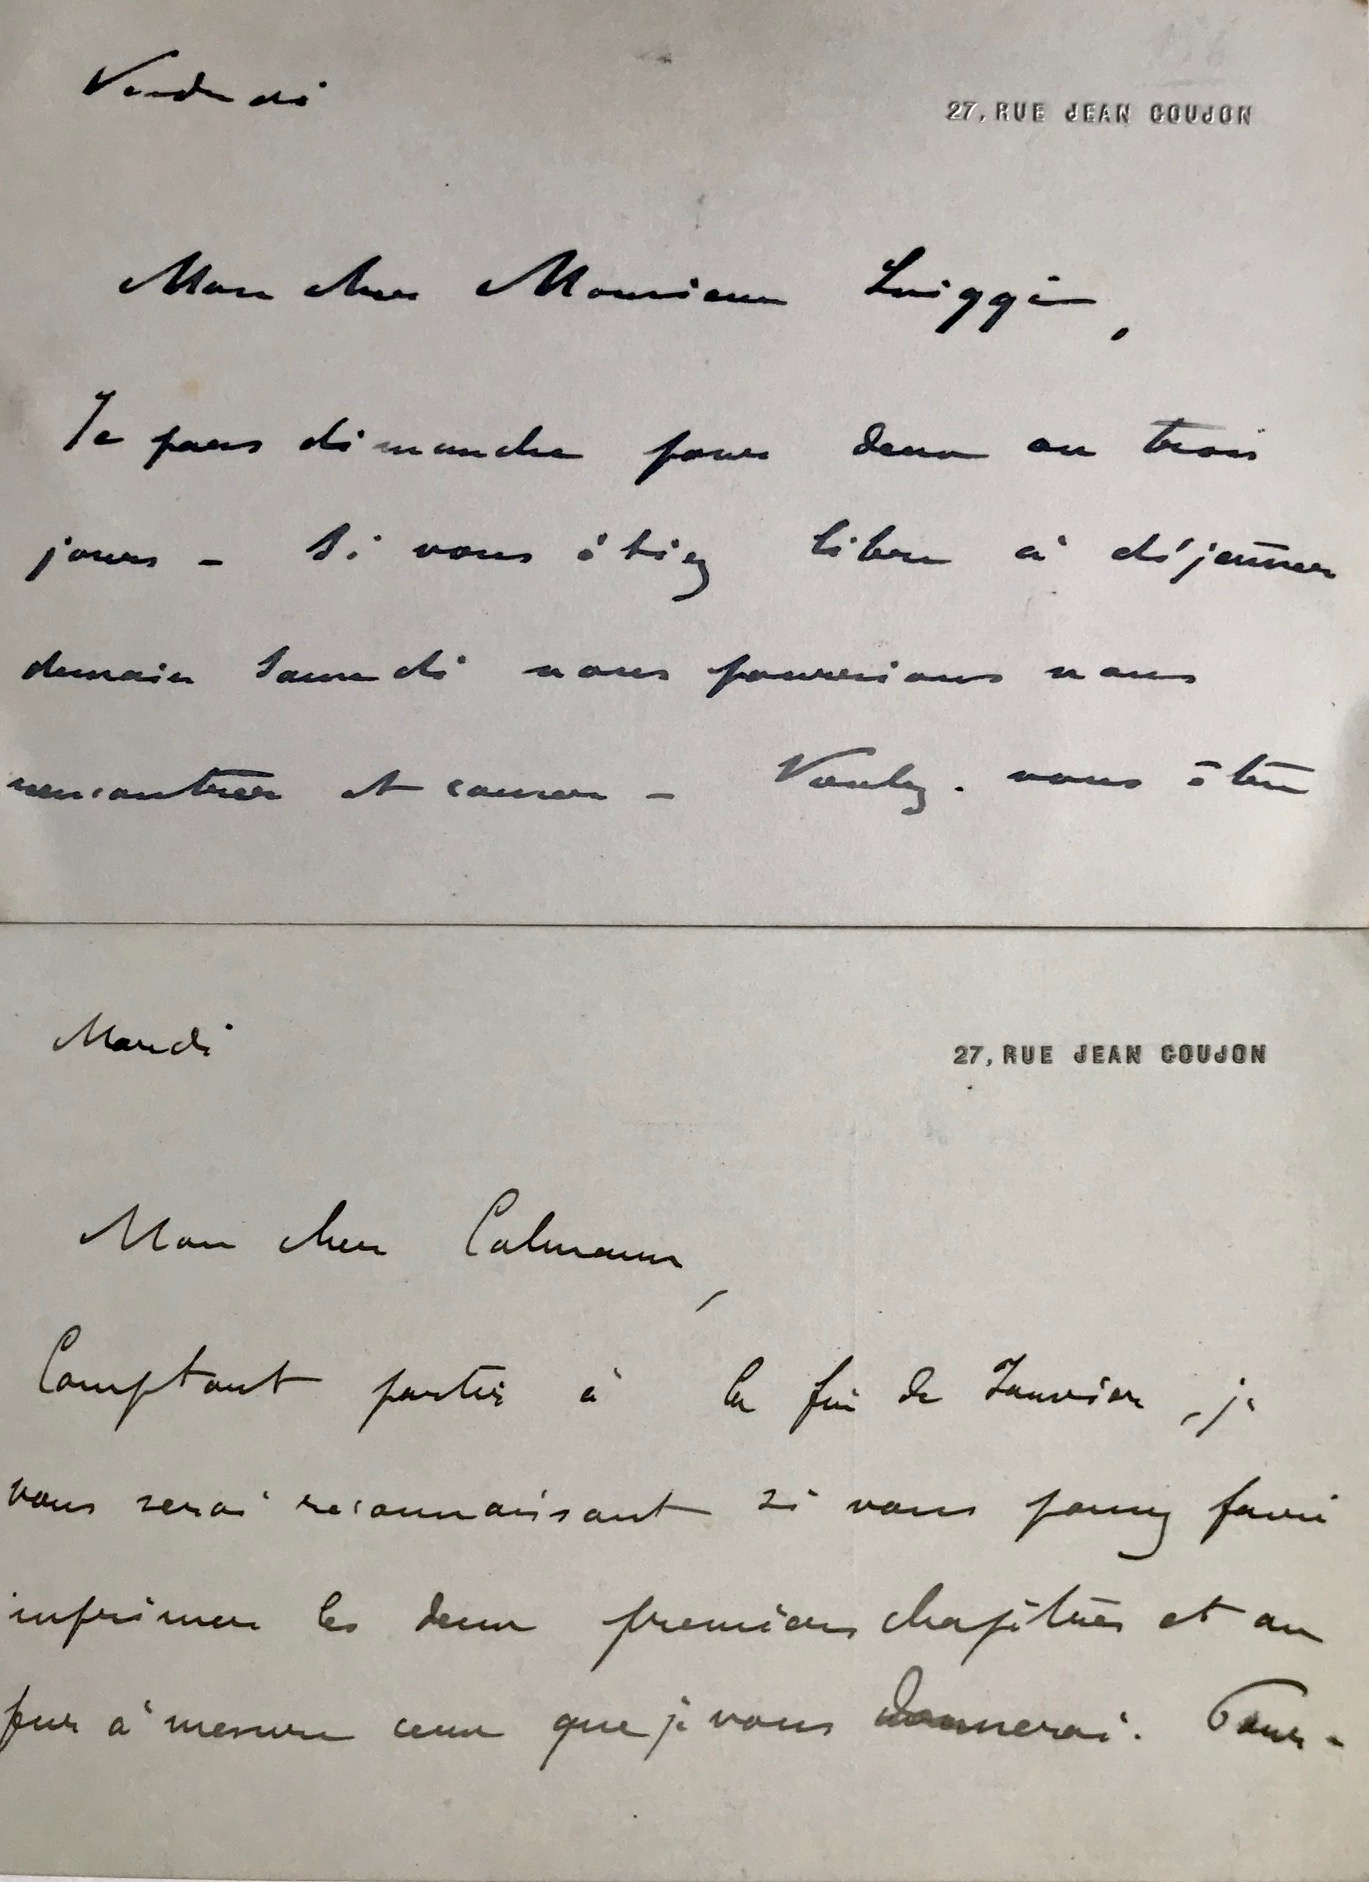 Vendredi
27, RUE JEAN GOUJON
Mon cher Monsieur Luiggi,
Je pars dimanche pour deux ou trois
jours - Si vous étiez libre à déjeuner
demain Samedi nous pourrions nous
rencontrer et causer - Voulez-vous être
Mardi
27, RUE JEAN GOUJON
Mon cher Calmann,
Comptant partir à la fin de Janvier, je
vous serai reconnaissant si vous pouvez faire
imprimer les deux premiers chapitres et au
fur à mesure ceux que je vous donnerai. Pour-